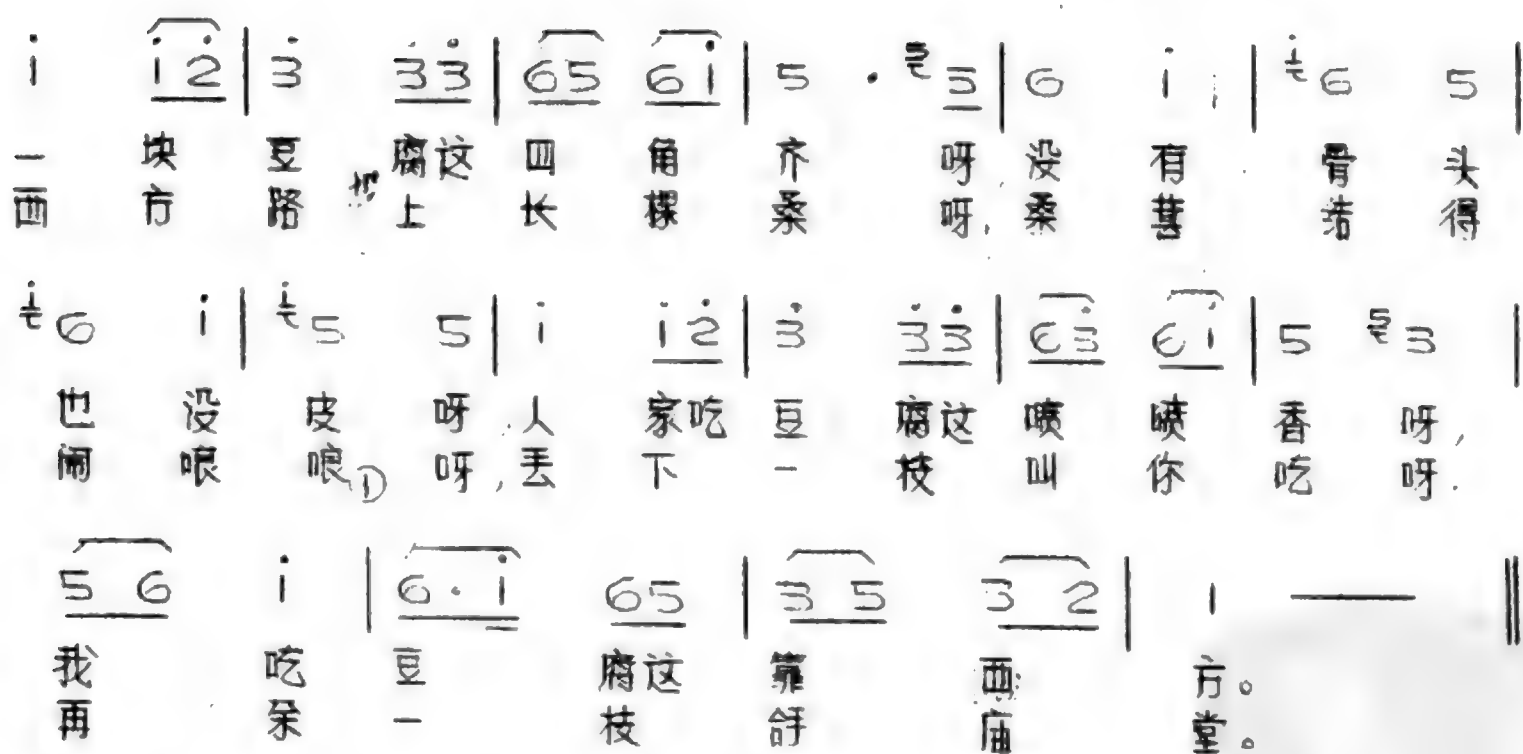 i i 2 | 3 3 3 | 6 5 6 i | 5 · 3 | 6 i | 6 5 |
一 块 豆 腐这 四 角 齐 呀 没 有 骨 头
西 方 路 上 长 棵 桑 呀, 桑 葚 结 得
6 i | 5 5 | i i 2 | 3 3 3 | 6 3 6 i | 5 3 |
也 没 皮 呀, 人 家吃 豆 腐这 喷 喷 香 呀,
闹 哴 哴① 呀, 丢 下 一 枝 叫 你 吃 呀.
5 6 i | 6 · i 6 5 | 3 5 3 2 | 1 — ‖
我 吃 豆 腐这 靠 西 方。
再 一 枝 庙 堂。